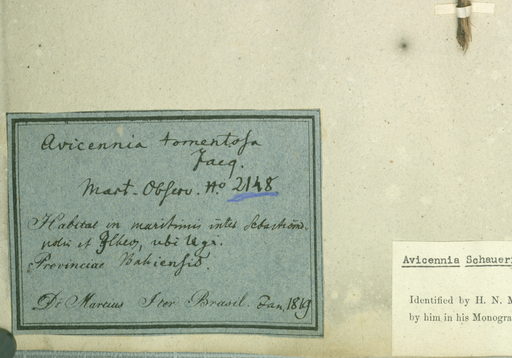 Avicennia tomentosa
Jacq.
Mart. Observ. No 2148
Habitat in maritimis inter Sebastiano-
polin et Ilheos, ubi
Provinciae Bahiensis.
Dr Martius Iter Brasil. Jan. 1819
Avicennia Schaueri
Identified by H. N. M
by him in his Monogra